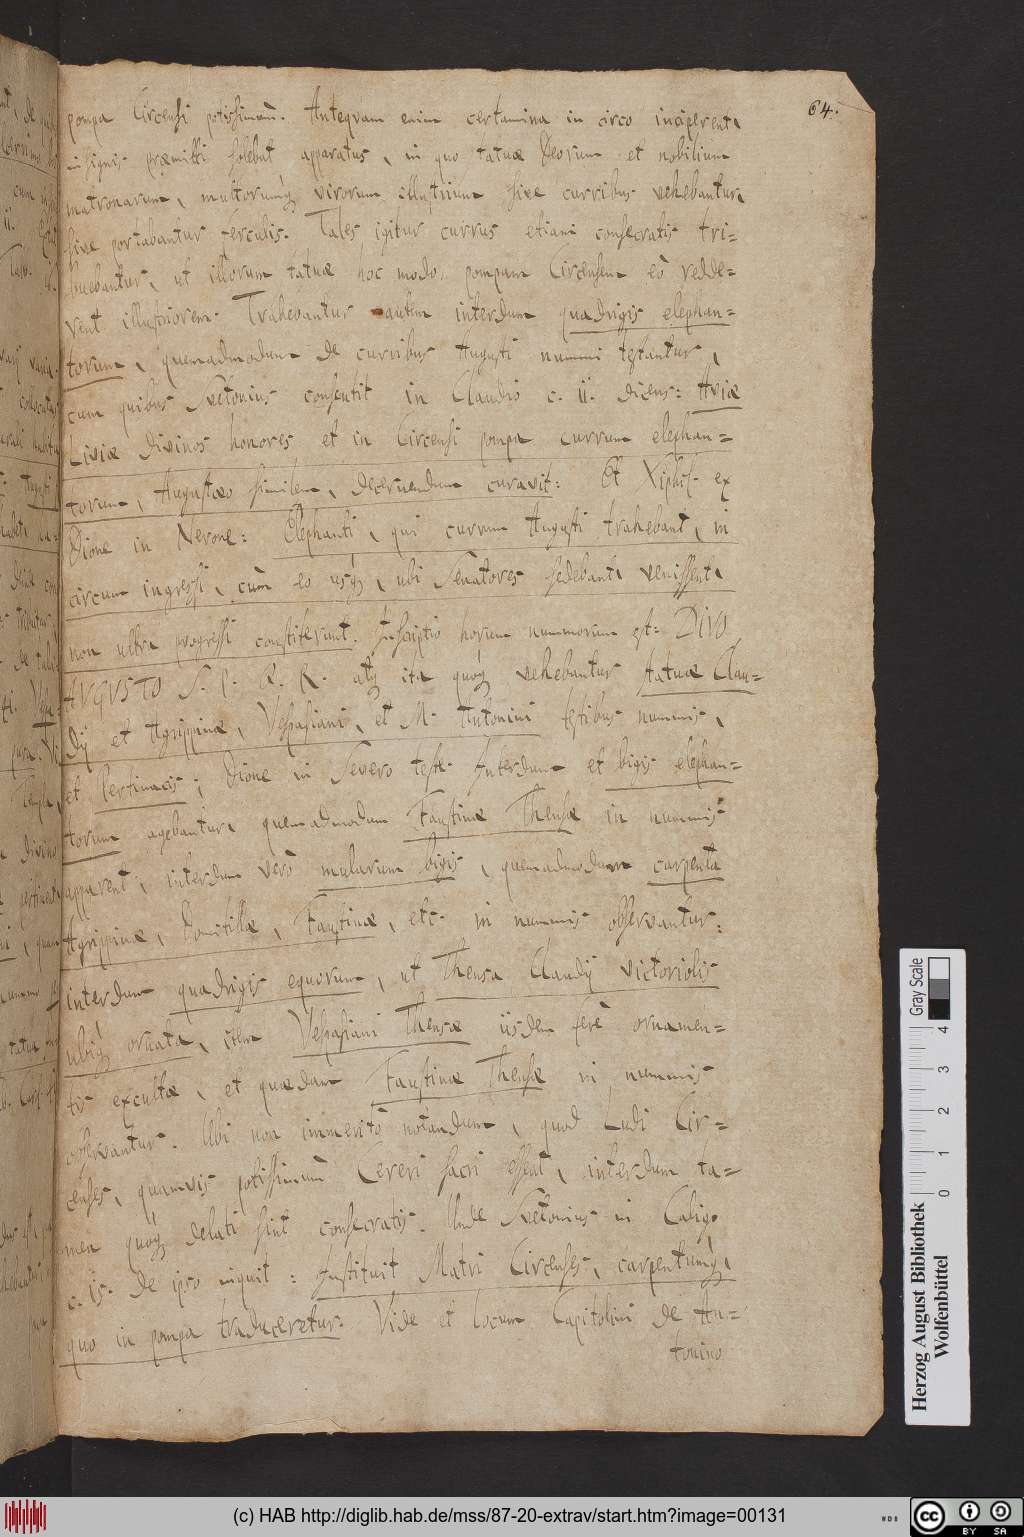 64.
pompa Circensi potissimùm. Antequam enim certamina in circo inciperent,
insignis præmitti solebat apparatus, in quo statuæ Deorum et nobilium
matronarum, multorumq́ virorum illustrium sive curribus vehebantur,
sive portabantur ferculis. Tales igitur currus etiam consecratis tri=
buebantur, ut illorum statuæ hoc modo, pompam Circensem eò redde=
rent illustriorem. Trahebantur autem interdum quadrigis elephan=
torum, quemadmodum de curribus Augusti nummi testantur,
cum quibus Svetonius consentit in Claudio c. ii. dicens: Aviæ
Liviæ divinos honores et in Circensi pompa currum elephan=
torum, Augustæo similem, decernendum curavit: Et Xiphil. ex
Dione in Nerone: Elephanti, qui currum Augusti trahebant, in
circum ingressi, cùm eo usq́, ubi Senatores sedebant, venissent,
non ultra progressi constiterunt. Inscriptio horum nummorum est: DIVO
AVGVSTO S. P. Q. R. atq́ ita quoq́ vehebantur statuæ Clau=
dij et Agrippinæ, Vespasiani, et M. Antonini testibus nummis,
et Pertinacis; Dione in Severo teste. Interdum et bigis elephan=
torum agebantur, quemadmodum Faustinæ Thensæ in nummis
apparent; interdum verò mularum bigis, quemadmodum carpenta
Agrippinæ, Domitillæ, Faustinæ, etc. in nummis observantur:
interdum quadrigis equorum, ut Thensa Claudij victoriolis
ubiq́ ornata, item Vespasiani Thensæ iisdem ferè ornamen=
tis excultæ, et quædam Faustinæ Thensæ in nummis
observantur. Ubi non immeritò notandum, quod Ludi Cir=
censes, quamvis potissimùm Cereri sacri essent, interdum ta=
men quoq́ delati sint consecratis. Unde Svetonius in Calig.
c. 15. de ipso inquit: Instituit Matri Circenses, carpentumq́,
quo in pompa traduceretur. Vide et locum Capitolini de An=
tonino
Gray Scale
0 1 2 3 4
Herzog August Bibliothek
Wolfenbüttel
(c) HAB http://diglib.hab.de/mss/87-20-extrav/start.htm?image=00131
cc BY SA